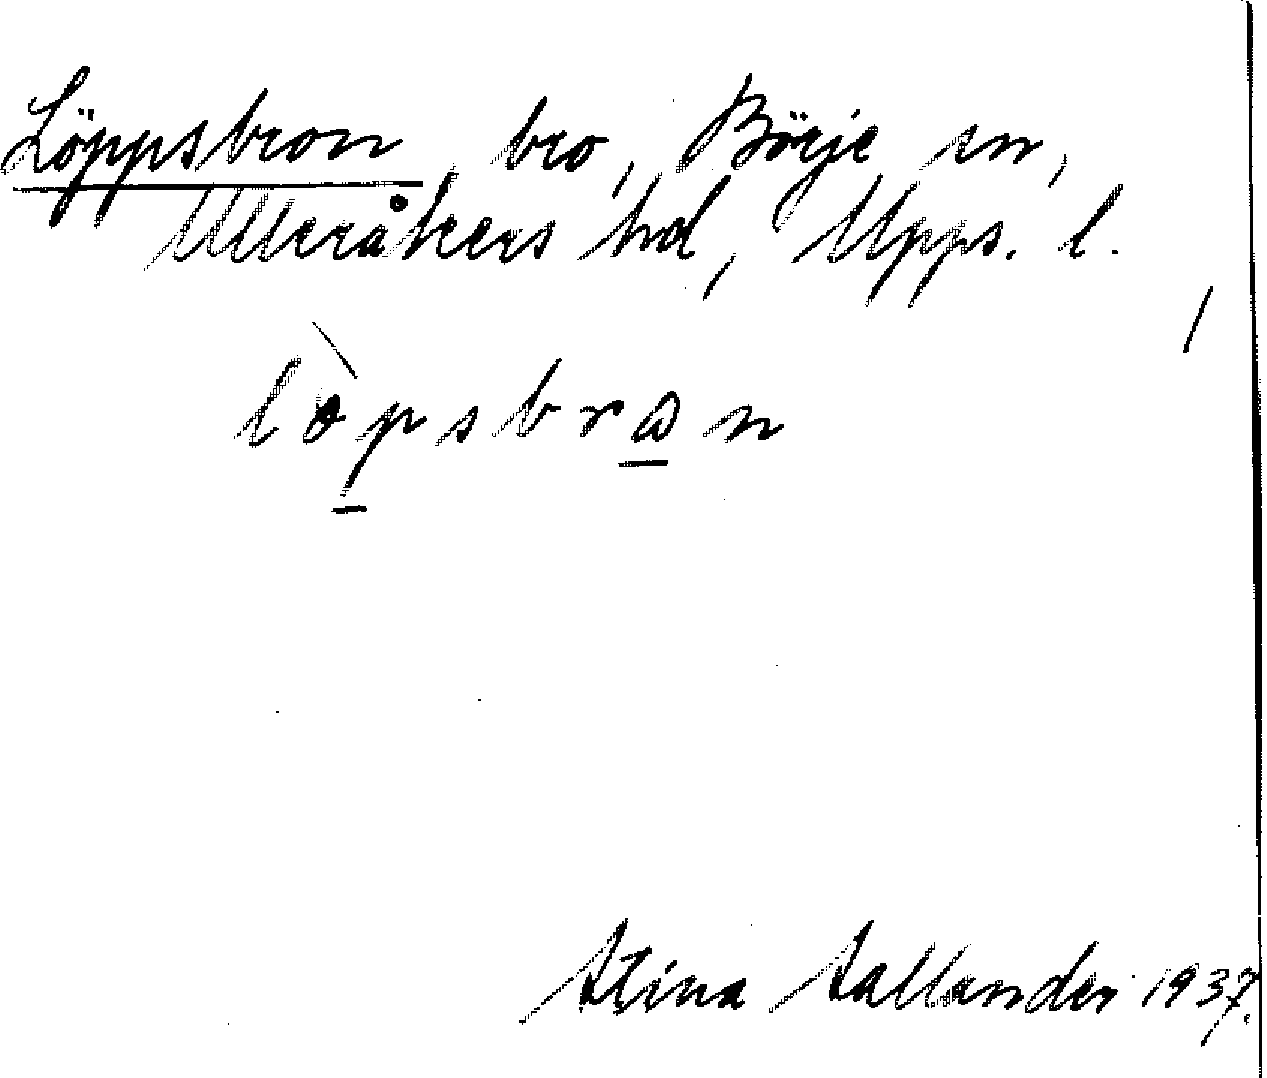 Löppsbron, bro, Börje sn,
Ulleråkers hd, Upps. l.
lòpsbrωn
Stina Sallander 1937.